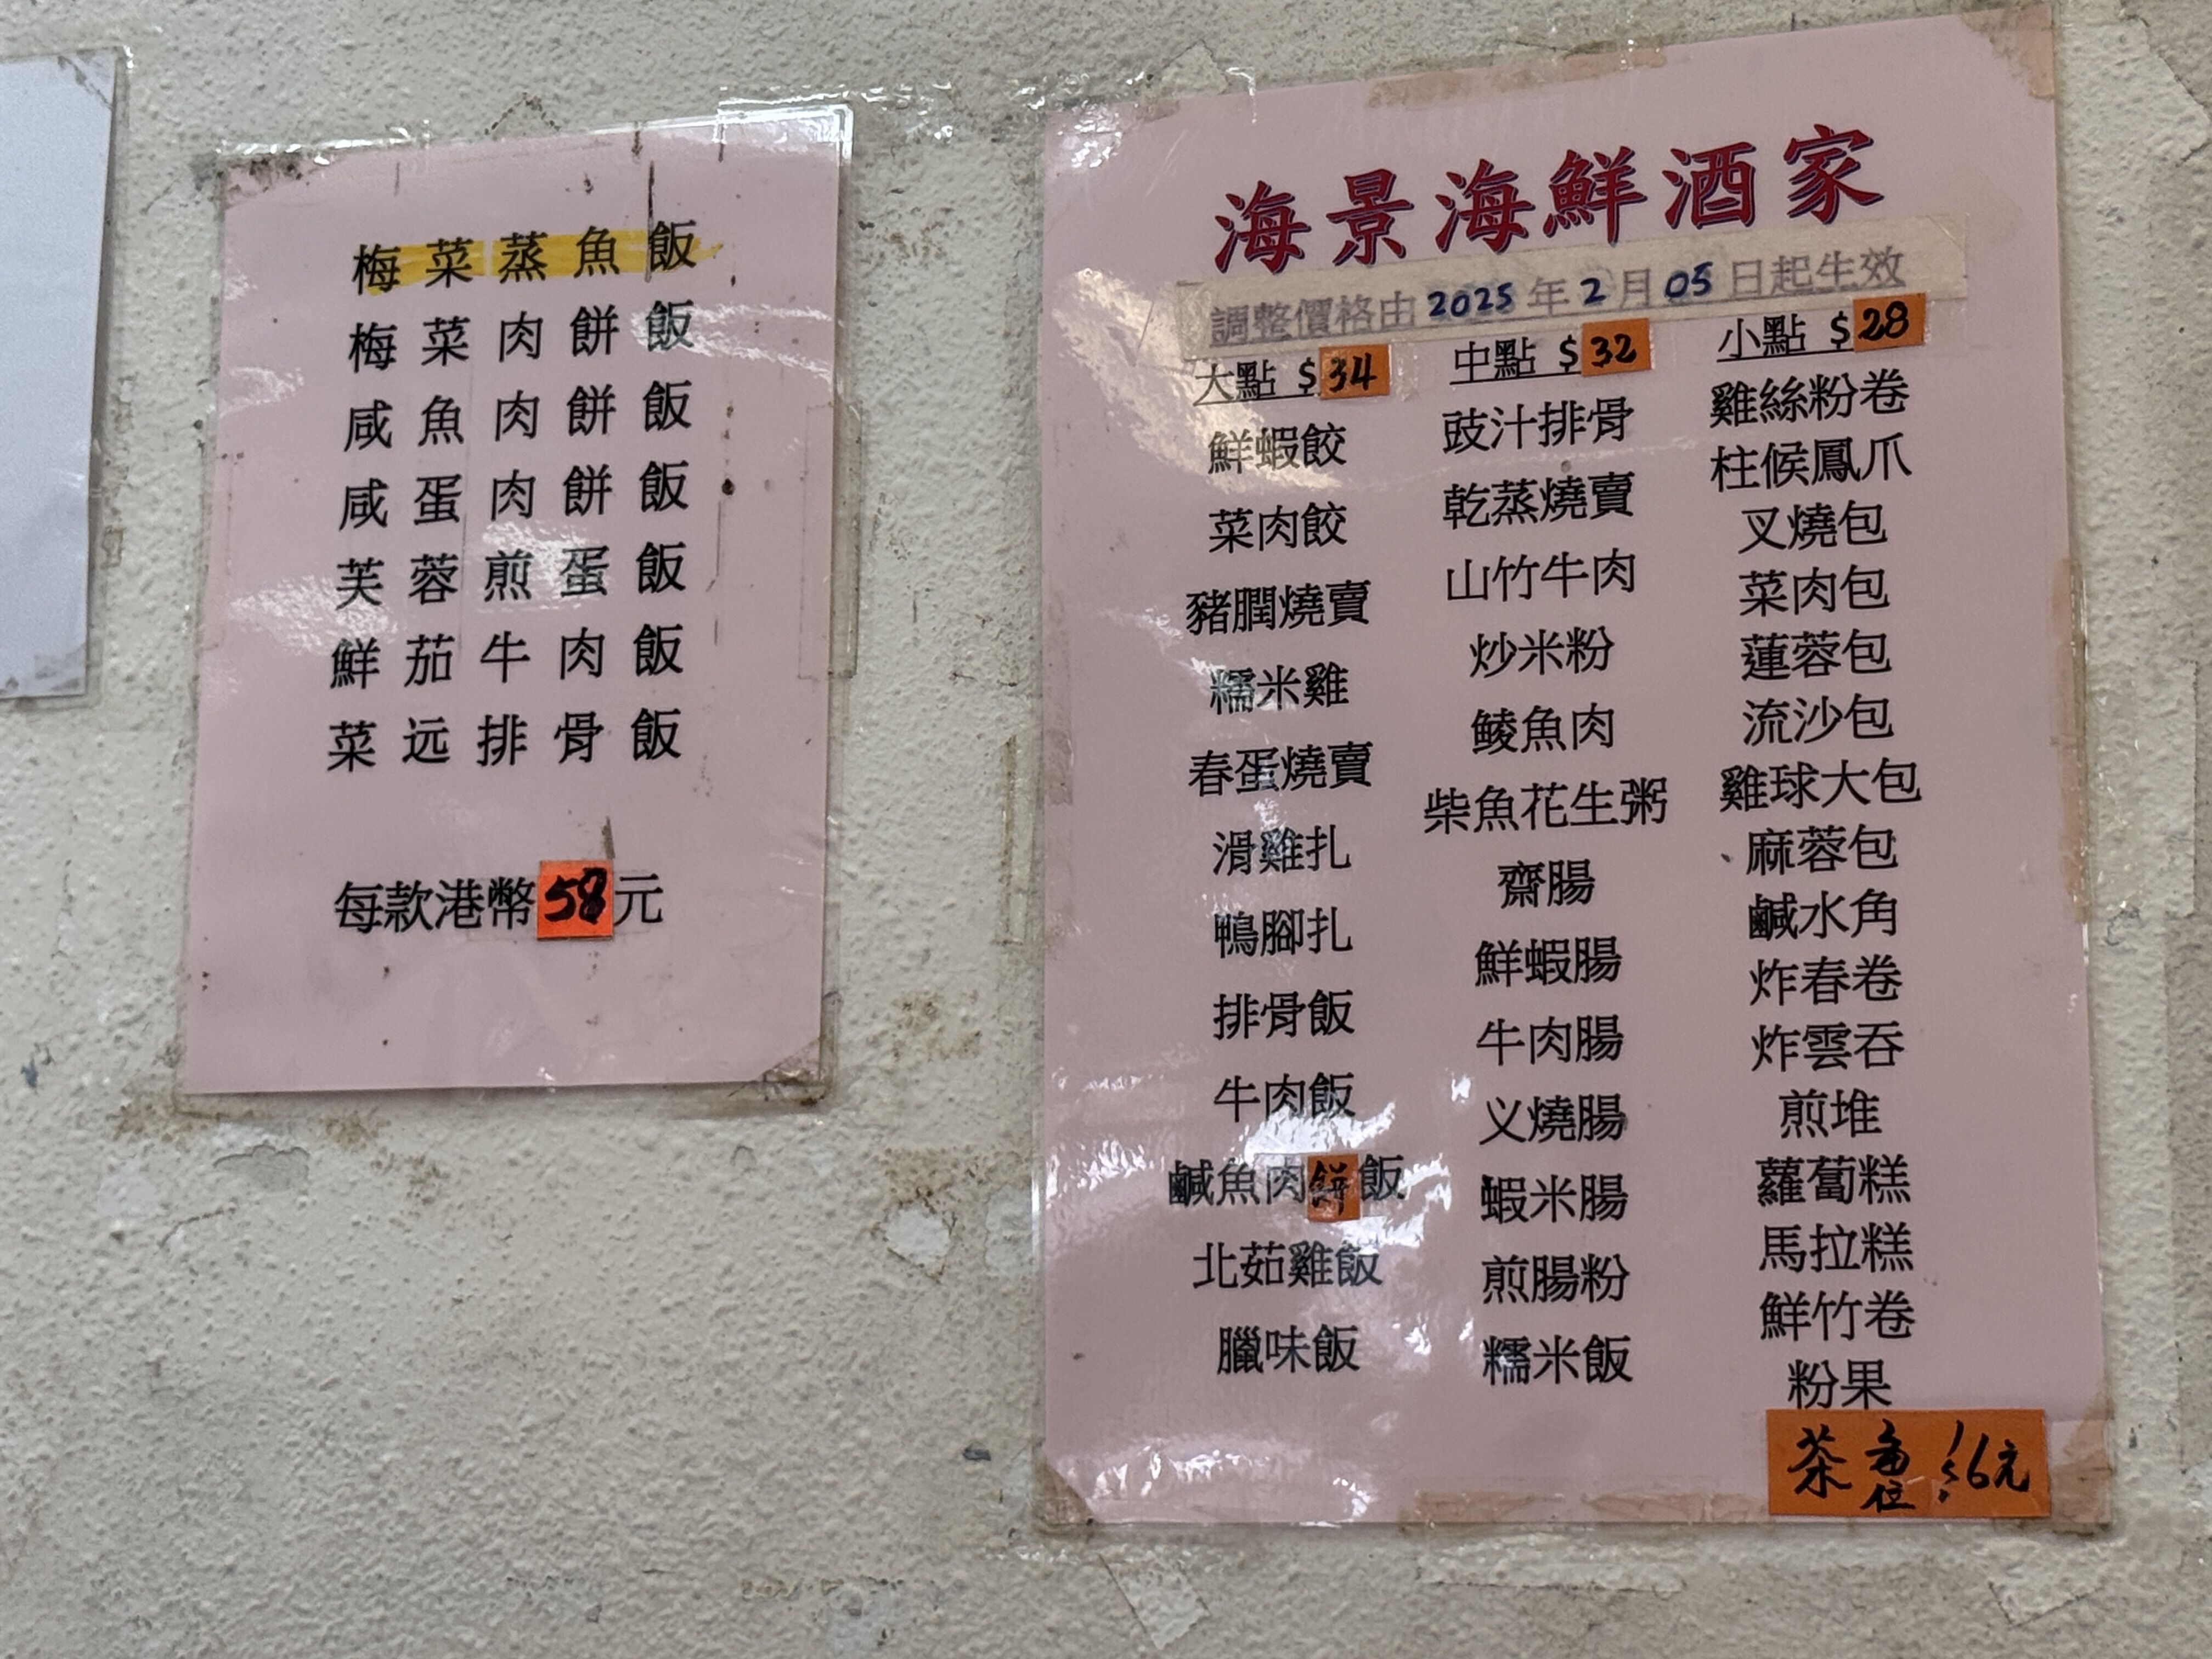 梅菜蒸魚飯
梅菜肉餅飯
咸魚肉餅飯
咸蛋肉餅飯
芙蓉煎蛋飯
鮮茄牛肉飯
菜远排骨飯
每款港幣58元
海景海鮮酒家
調整價格由2025年2月05日起生效
大點 $34
鮮蝦餃
菜肉餃
豬膶燒賣
糯米雞
春蛋燒賣
滑雞扎
鴨腳扎
排骨飯
牛肉飯
鹹魚肉餅飯
北茹雞飯
臘味飯
中點 $32
豉汁排骨
乾蒸燒賣
山竹牛肉
炒米粉
鯪魚肉
柴魚花生粥
齋腸
鮮蝦腸
牛肉腸
义燒腸
蝦米腸
煎腸粉
糯米飯
小點 $28
雞絲粉卷
柱候鳳爪
叉燒包
菜肉包
蓮蓉包
流沙包
雞球大包
麻蓉包
鹹水角
炸春卷
炸雲吞
煎堆
蘿蔔糕
馬拉糕
鮮竹卷
粉果
茶每位 $6元